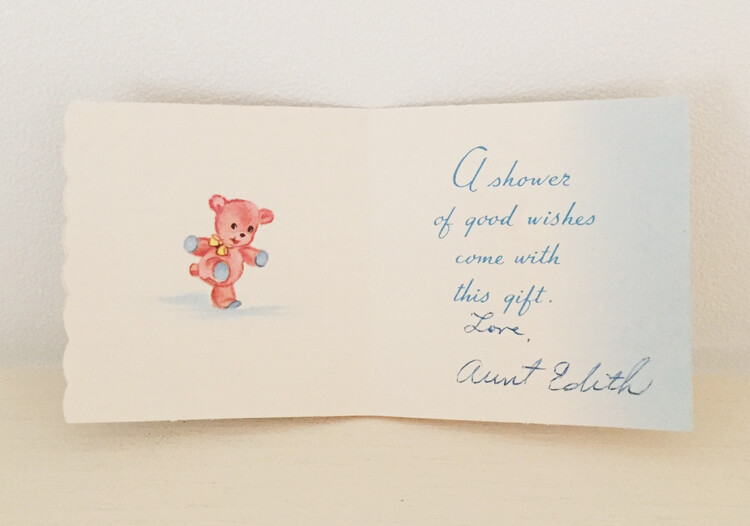 A shower
of good wishes
come with
this gift.
Love,
Aunt Edith